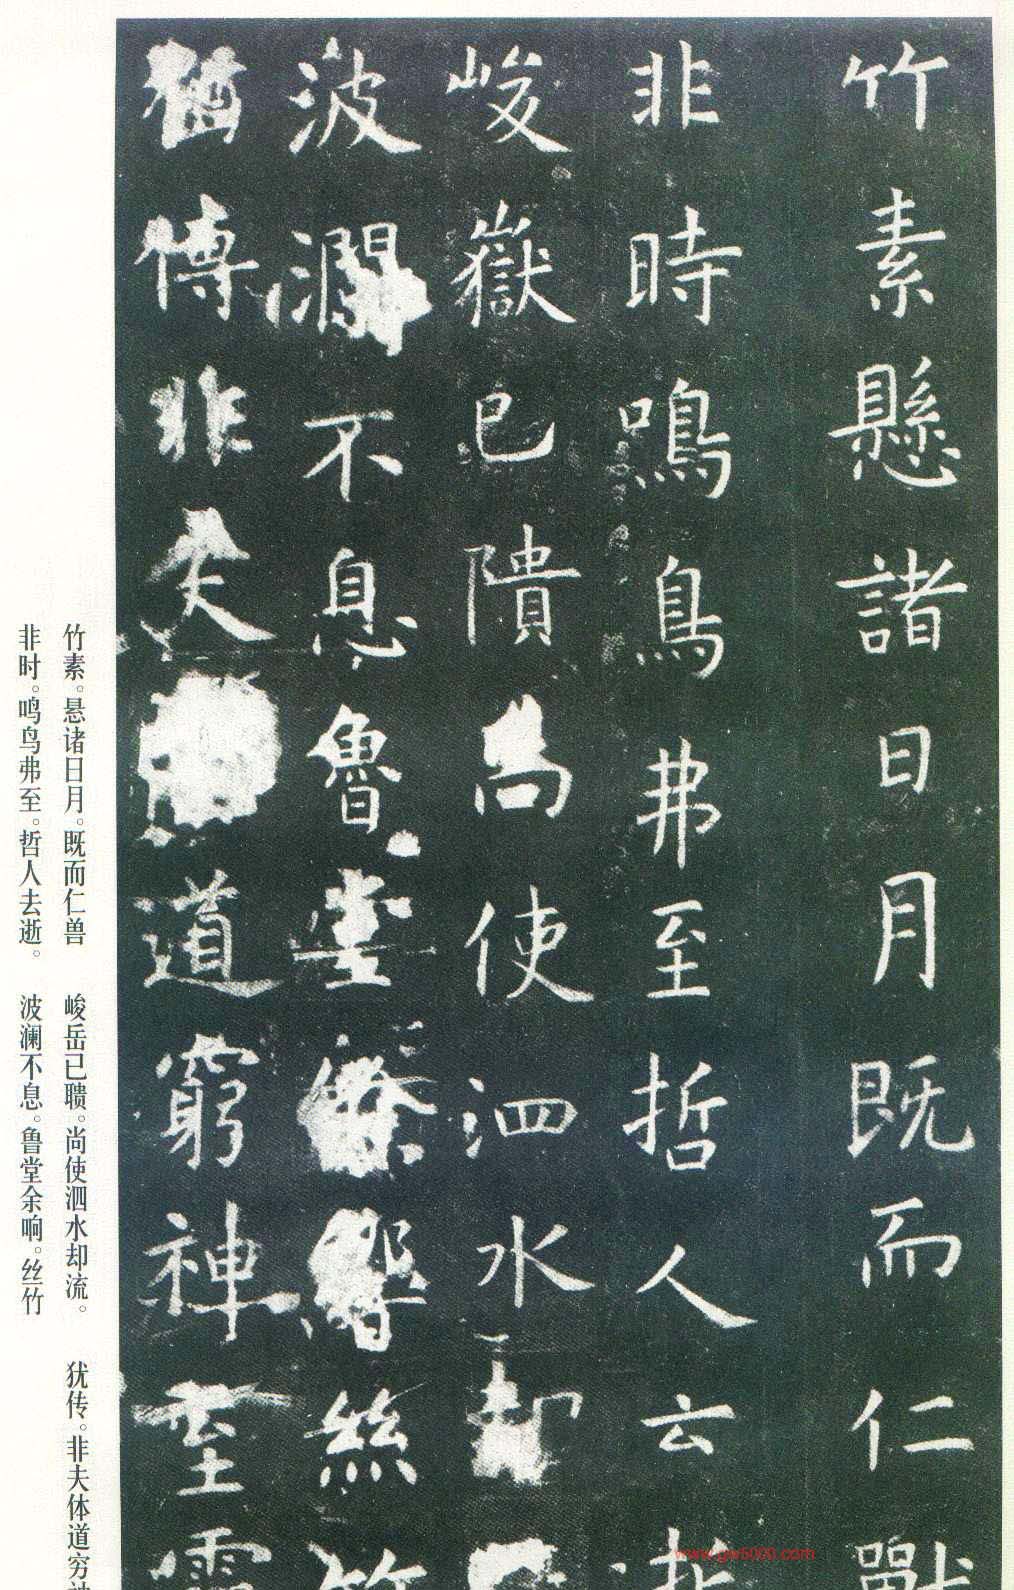 竹素懸諸日月既而仁獸
非時鳴鳥弗至哲人云逝
峻嶽已隤尚使泗水却
波瀾不息魯堂餘響絲竹
猶傳非夫道窮神至靈
竹素。悬诸日月。既而仁兽
非时。鸣鸟弗至。哲人去逝。
峻岳已聩。尚使泗水却流。
波澜不息。鲁堂余响。丝竹
犹传。非夫体道穷神
www.gw5000.com